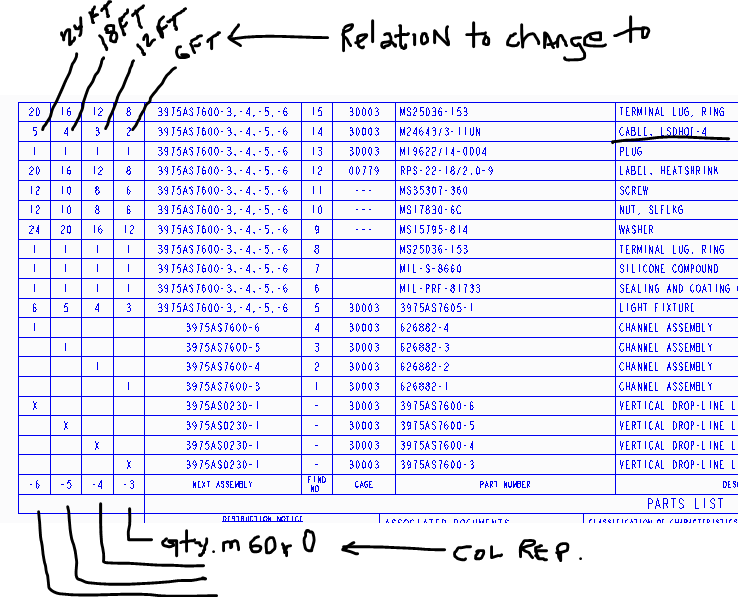 24 FT 18 FT 12 FT 6 FT ← Relation to change to
20 16 12 8 3975AS7600-3,-4,-5,-6 15 30003 MS25036-153 TERMINAL LUG, RING
5 4 3 2 3975AS7600-3,-4,-5,-6 14 30003 M24643/3-11UN CABLE, LSDHOF-4
1 1 1 1 3975AS7600-3,-4,-5,-6 13 30003 M19622/14-0004 PLUG
20 16 12 8 3975AS7600-3,-4,-5,-6 12 00779 RPS-22-18/2.0-9 LABEL, HEATSHRINK
12 10 8 6 3975AS7600-3,-4,-5,-6 11 --- MS35307-360 SCREW
12 10 8 6 3975AS7600-3,-4,-5,-6 10 --- MS17830-6C NUT, SLFLKG
24 20 16 12 3975AS7600-3,-4,-5,-6 9 --- MS15795-814 WASHER
1 1 1 1 3975AS7600-3,-4,-5,-6 8 MS25036-153 TERMINAL LUG, RING
1 1 1 1 3975AS7600-3,-4,-5,-6 7 MIL-S-8660 SILICONE COMPOUND
1 1 1 1 3975AS7600-3,-4,-5,-6 6 MIL-PRF-81733 SEALING AND COATING
6 5 4 3 3975AS7600-3,-4,-5,-6 5 30003 3975AS7605-1 LIGHT FIXTURE
1 3975AS7600-6 4 30003 626882-4 CHANNEL ASSEMBLY
1 3975AS7600-5 3 30003 626882-3 CHANNEL ASSEMBLY
1 3975AS7600-4 2 30003 626882-2 CHANNEL ASSEMBLY
1 3975AS7600-3 1 30003 626882-1 CHANNEL ASSEMBLY
X 3975AS0230-1 - 30003 3975AS7600-6 VERTICAL DROP-LINE L
X 3975AS0230-1 - 30003 3975AS7600-5 VERTICAL DROP-LINE L
X 3975AS0230-1 - 30003 3975AS7600-4 VERTICAL DROP-LINE L
X 3975AS0230-1 - 30003 3975AS7600-3 VERTICAL DROP-LINE L
-6 -5 -4 -3 NEXT ASSEMBLY FIND NO CAGE PART NUMBER DES
PARTS LIST
DESTRUCTION NOTICE ASSOCIATED DOCUMENTS CLASSIFICATION OF CHARACTERISTICS
qty. m 60r 0 ← COL REP.